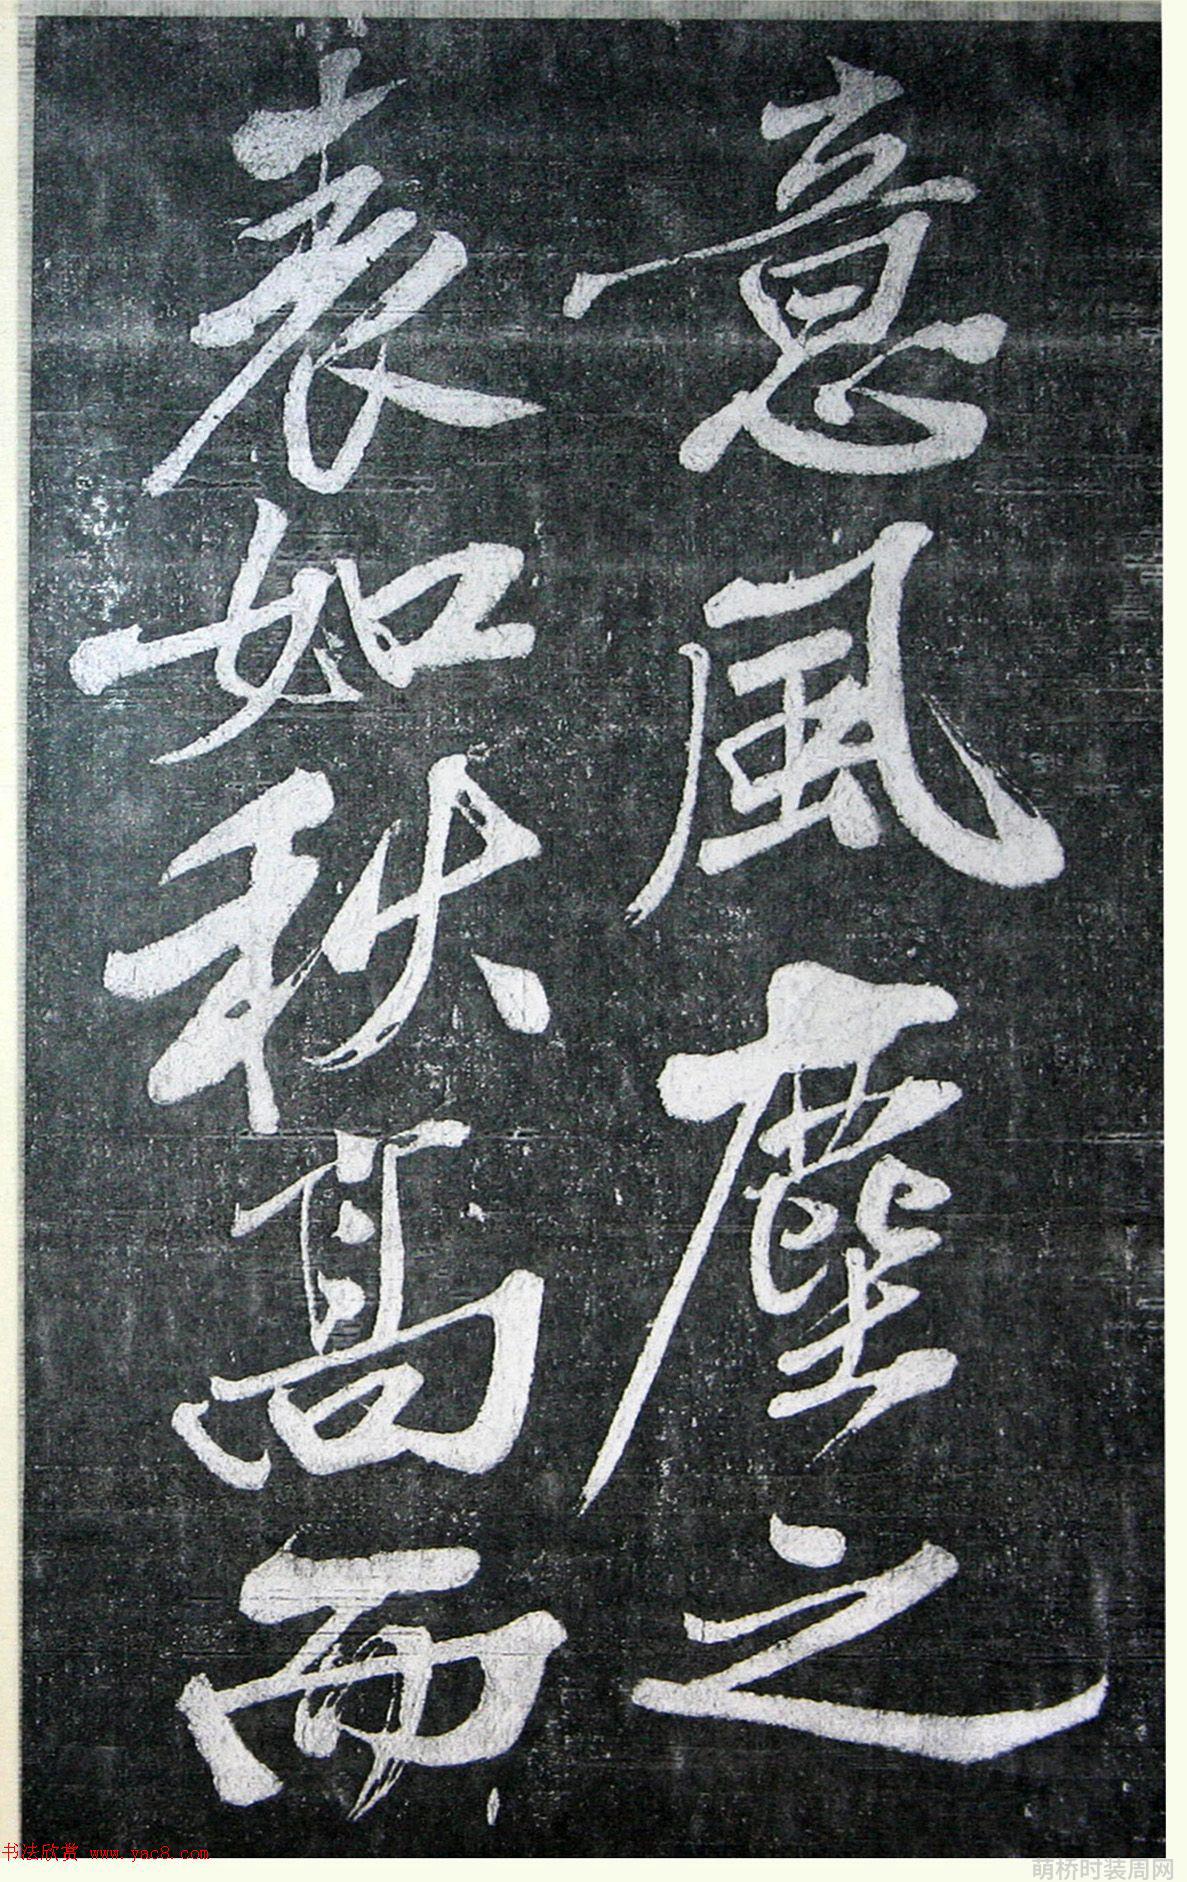 意風塵之
表如秋高而
书法欣赏 www.yac8.com
萌桥时装周网